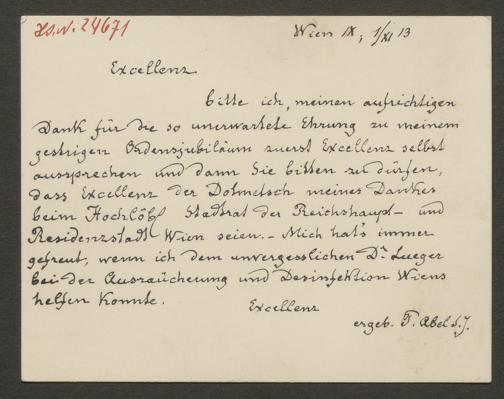 H.I.N. 24671
Wien IX, 1/XI 13
Excellenz
bitte ich, meinen aufrichtigen
Dank für die so unerwartete Ehrung zu meinem
gestrigen Ordensjubiläum zuerst Excellenz selbst
aussprechen und dann Sie bitten zu dürfen,
dass Excellenz der Dolmetsch meines Dankes
beim Hochlöbl Stadtrat der Reichshaupt- und
Residenzstadt Wien seien. - Mich hat's immer
gefreut, wenn ich dem unvergesslichen Dr Lueger
bei der Ausräucherung und Desinfektion Wiens
helfen konnte.
Excellenz
ergeb. F. Abel S.J.